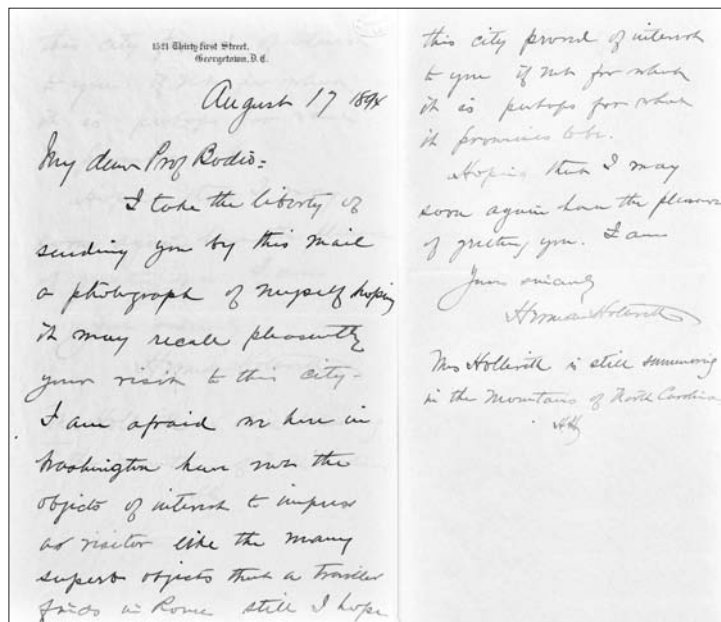 1521 Thirty first Street.
Georgetown, D.C.
August 17 189
My dear Prof Bodio:
I take the liberty of
sending you by this mail
a photograph of myself hoping
it may recall pleasantly
your visit to this city-
I am afraid we here in
Washington have not the
objects of interest to impress
a visitor like the many
superb objects that a traveller
finds in Rome still I hope
this city proved of interest
to you if not for what
it is perhaps for what
it promises to be.
Hoping that I may
soon again have the pleasure
of greeting you. I am
Yours sincerely
Herman Hollerith
Mrs Hollerith is still summering
in the Mountains of North Carolina
HH